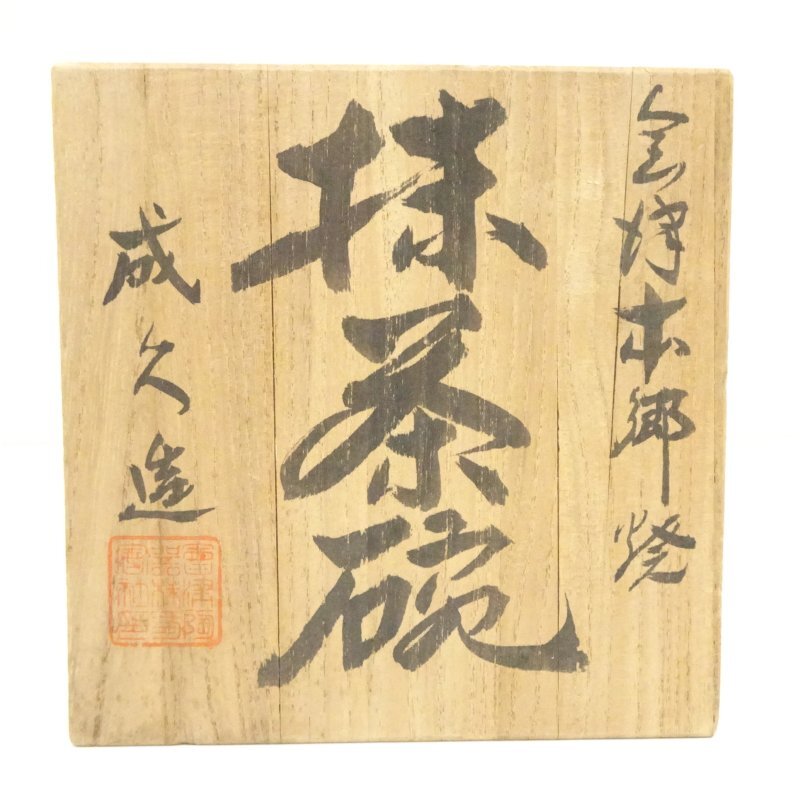 会津本郷焼
抹茶碗
成久造